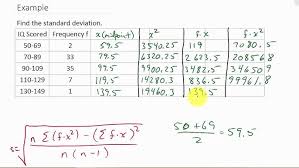 Example
Find the standard deviation.
IQ Scored Frequency f x(midpoint) x² f·x f·x²
50-69 2 59.5 3540.25 119 7080.5
70-89 33 79.5 6320.25 2623.5 208568.8
90-109 35 99.5 9900.25 3482.5 346508.
110-129 7 119.5 14280.3 836.5 99961.8
130-149 1 139.5 19460.3 139.5
s= √ n Σ(f·x²) - (Σ f·x)²
n(n-1)
50+69
2 = 59.5